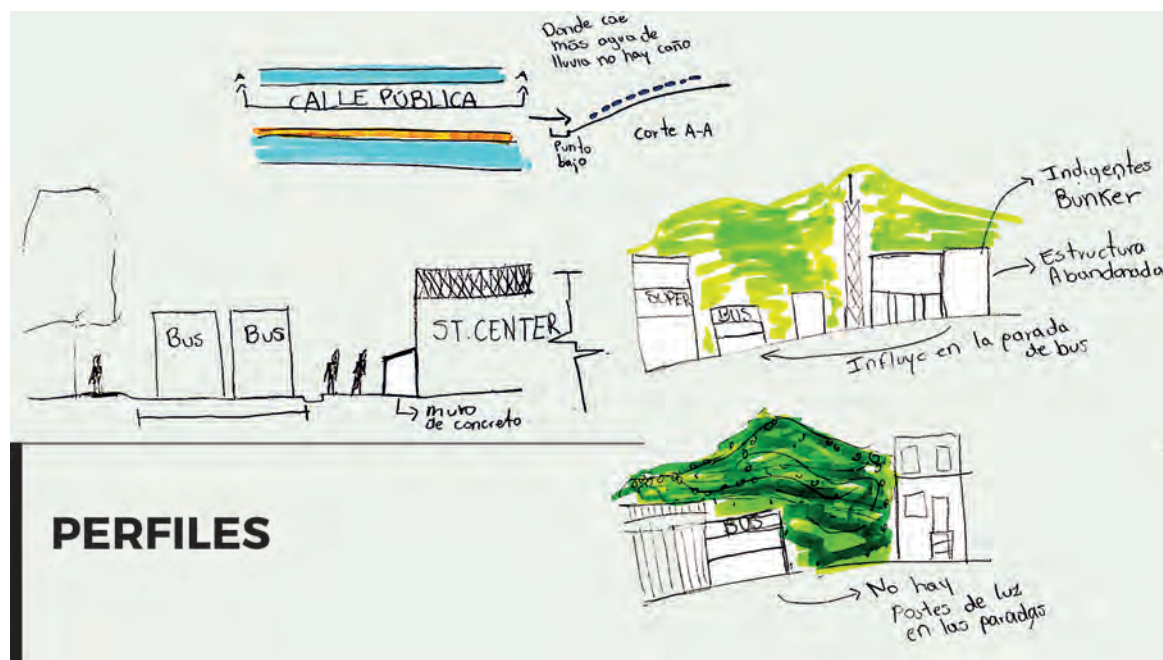 Donde cae
más agua de
lluvia no hay caño
A
A
CALLE PÚBLICA
Punto
bajo
Corte A-A
Indigentes
Bunker
Estructura
Abandonada
SUPER
BUS
Influye en la parada
de bus
Bus
Bus
ST. CENTER
muro
de concreto
PERFILES
BUS
No hay
Postes de luz
en las paradas